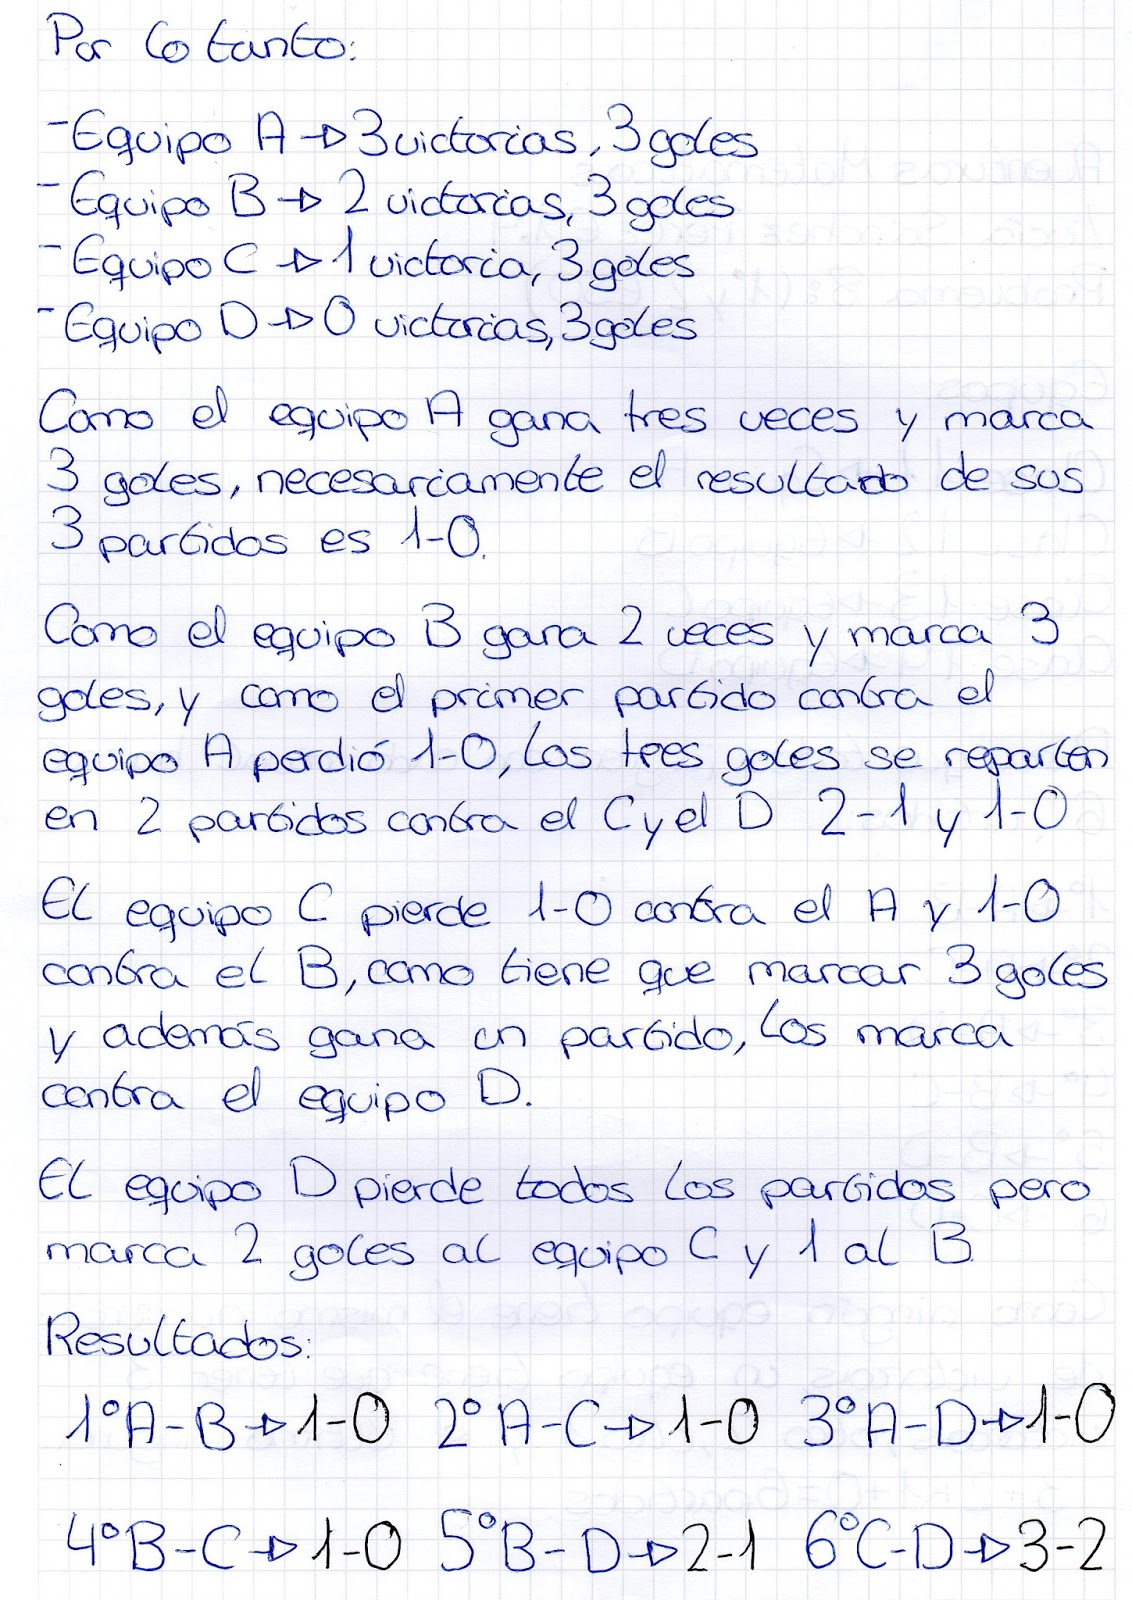 Por lo tanto:
- Equipo A → 3 victorias, 3 goles
- Equipo B → 2 victorias, 3 goles
- Equipo C → 1 victoria, 3 goles
- Equipo D → 0 victorias, 3 goles
Como el equipo A gana tres veces y marca
3 goles, necesariamente el resultado de sus
3 partidos es 1-0.
Como el equipo B gana 2 veces y marca 3
goles, y como el primer partido contra el
equipo A perdió 1-0, los tres goles se reparten
en 2 partidos contra el C y el D 2-1 y 1-0
El equipo C pierde 1-0 contra el A y 1-0
contra el B, como tiene que marcar 3 goles
y además gana un partido, los marca
contra el equipo D.
El equipo D pierde todos los partidos pero
marca 2 goles al equipo C y 1 al B
Resultados:
1º A-B → 1-0 2º A-C → 1-0 3º A-D → 1-0
4º B-C → 1-0 5º B-D → 2-1 6º C-D → 3-2